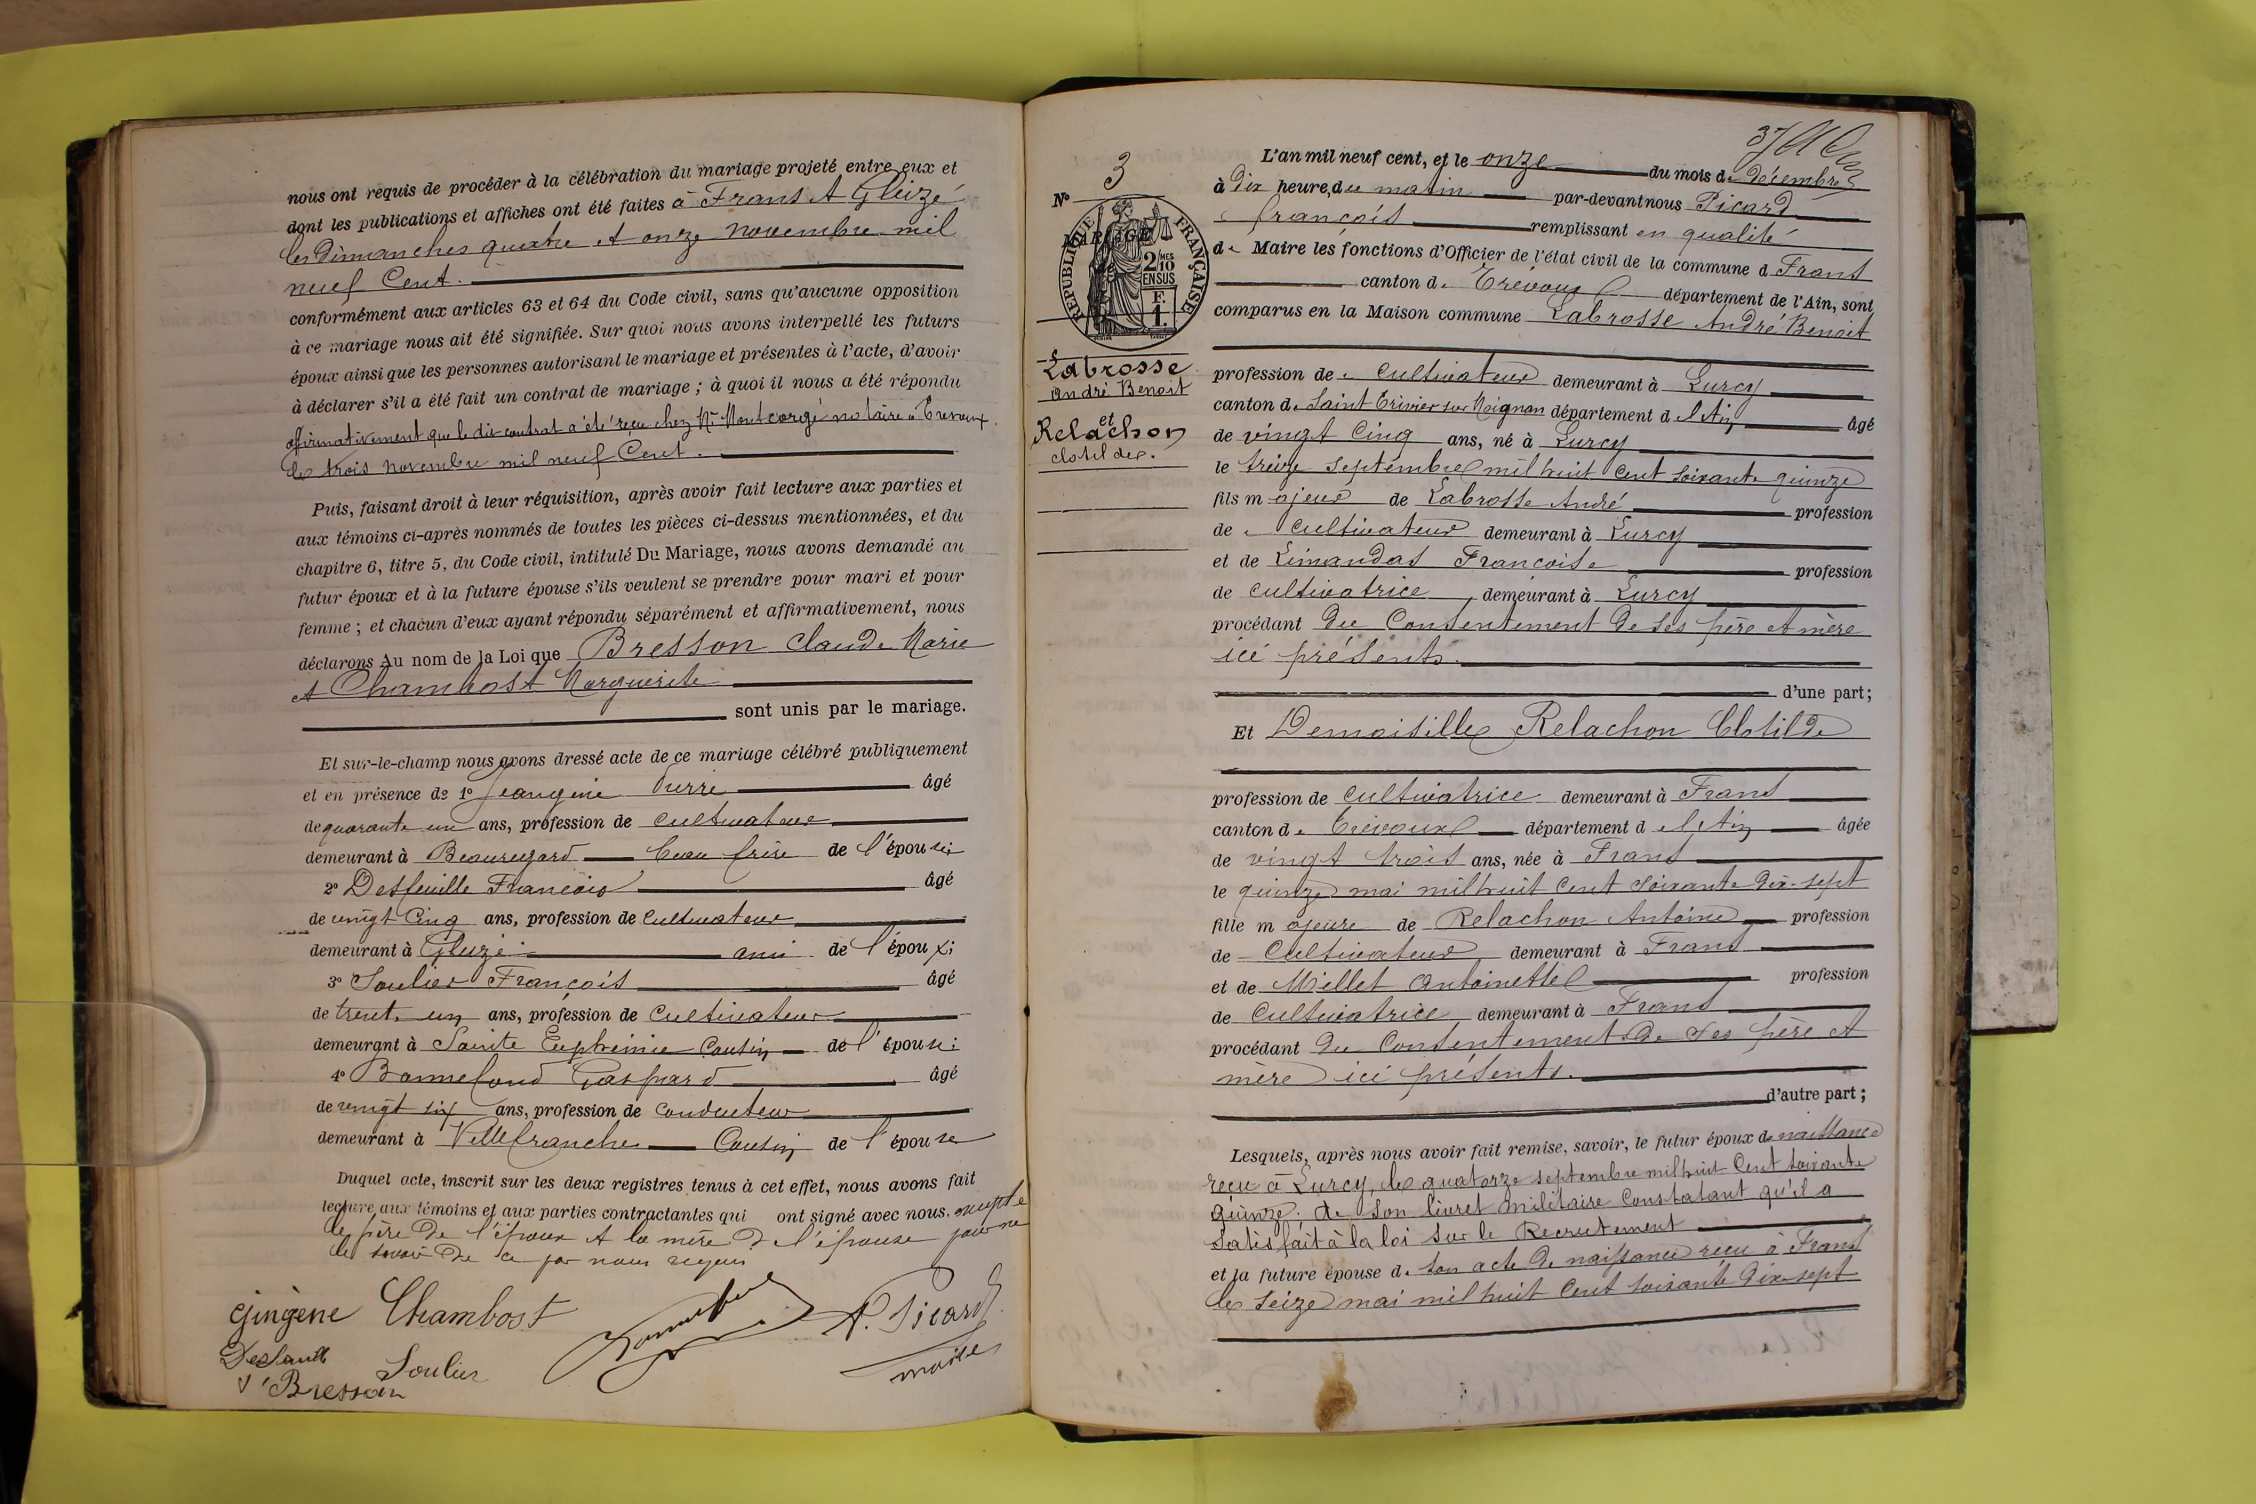 nous ont requis de procéder à la célébration du mariage projeté entre eux et
dont les publications et affiches ont été faites à Frans et Gleizé
les dimanches quatre et onze novembre mil
neuf Cent.
conformément aux articles 63 et 64 du Code civil, sans qu'aucune opposition
à ce mariage nous ait été signifiée. Sur quoi nous avons interpellé les futurs
époux ainsi que les personnes autorisant le mariage et présentes à l'acte, d'avoir
à déclarer s'il a été fait un contrat de mariage ; à quoi il nous a été répondu
affirmativement que le dit contrat a été reçu chez Mr Montcorgé notaire à Trevoux.
le trois novembre mil neuf Cent.
Puis, faisant droit à leur réquisition, après avoir fait lecture aux parties et
aux témoins ci-après nommés de toutes les pièces ci-dessus mentionnées, et du
chapitre 6, titre 5, du Code civil, intitulé Du Mariage, nous avons demandé au
futur époux et à la future épouse s'ils veulent se prendre pour mari et pour
femme ; et chacun d'eux ayant répondu séparément et affirmativement, nous
déclarons Au nom de la Loi que Bresson Claude Marie
et Chambost Marguerite
sont unis par le mariage.
Et sur-le-champ nous avons dressé acte de ce mariage célébré publiquement
et en présence de 1° Pierre âgé
de quarante un ans, profession de cultivateur
demeurant à Beauregard beau frère de l'épouse;
2° François âgé
de vingt Cinq ans, profession de cultivateur
demeurant à Gleizé ami de l'époux;
3° Soulier François âgé
de trente un ans, profession de Cultivateur
demeurant à Sainte Euphémie Cousin de l'épouse;
4° Bonnefond Gaspard âgé
de vingt six ans, profession de Conducteur
demeurant à Villefranche Cousin de l'épouse
Duquel acte, inscrit sur les deux registres tenus à cet effet, nous avons fait
lecture aux témoins et aux parties contractantes qui ont signé avec nous. excepté
le père de l'époux et la mère de l'épouse pour ne
le savoir de ce par nous requis
Gingène Chambost
P. Picard
maire
Soulier
Bresson
37
N° 3
MARIAGE
RÉPUBLIQUE FRANÇAISE
2/10 MES
EN SUS
F.
1.
Labrosse
andré Benoit
et
Relachon
clotilde.
L'an mil neuf cent, et le onze du mois de décembre
à dix heure, du matin par-devant nous Picard
françois remplissant en qualité
de Maire les fonctions d'Officier de l'état civil de la commune d Frans
canton de Trévoux département de l'Ain, sont
comparus en la Maison commune Labrosse André Benoit
profession de cultivateur demeurant à Lurcy
canton de Saint Trivier sur Moignan département d l'Ain âgé
de vingt Cinq ans, né à Lurcy
le treize septembre mil huit cent soixante quinze
fils majeur de Labrosse André profession
de cultivateur demeurant à Lurcy
et de Limandas Françoise profession
de cultivatrice demeurant à Lurcy
procédant du Consentement de ses père et mère
ici présents.
d'une part;
Et Demoiselle Relachon Clotilde
profession de cultivatrice demeurant à Frans
canton de Trévoux département d l'Ain âgée
de vingt trois ans, née à Frans
le quinze mai mil huit cent soixante dix-sept
fille majeure de Relachon Antoine profession
de Cultivateur demeurant à Frans
et de Millet Antoinette profession
de Cultivatrice demeurant à Frans
procédant du Consentement de ses père et
mère ici présents.
d'autre part;
Lesquels, après nous avoir fait remise, savoir, le futur époux de naissance
reçu à Lurcy, le quatorze septembre mil huit Cent soixante
quinze. de son livret militaire constatant qu'il a
satisfait à la loi sur le Recrutement
et la future épouse de son acte de naissance reçu à Frans
le seize mai mil huit cent soixante dix-sept